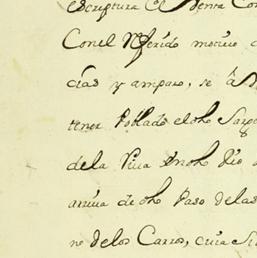 escriptura de Venta Con
Con el Referido motivo
cias y amparo, se à
tener Poblado el dho Sarg
de la Villa en dho Rio
arriva de dho Paso de las
no de los Carros, cuia